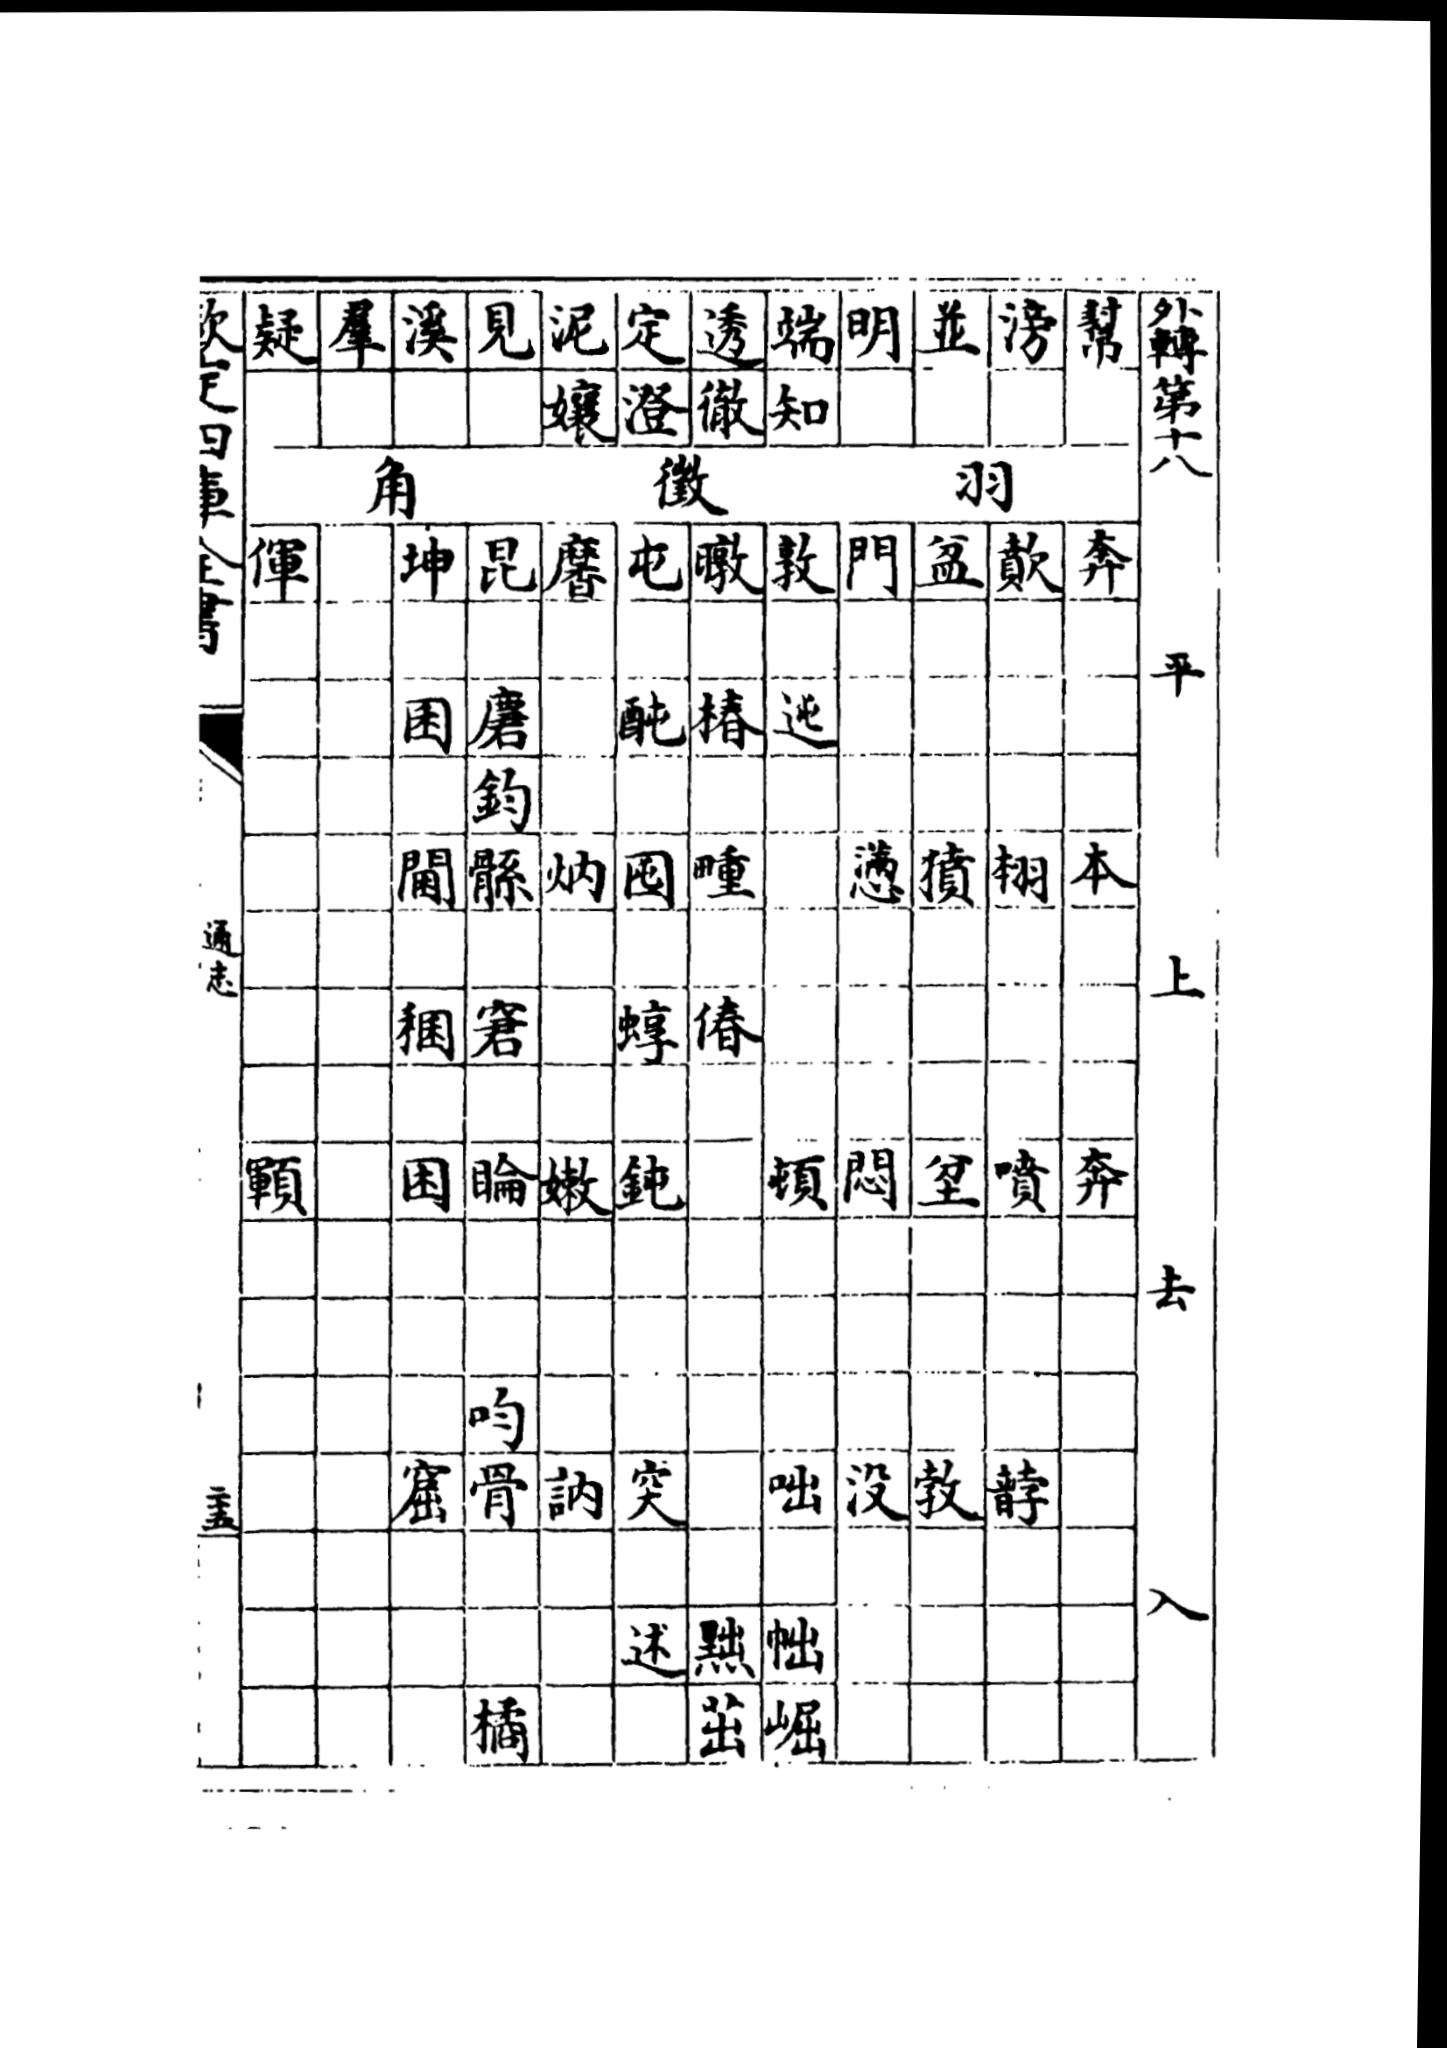 外轉第十八 平 上 去 入
幫 奔 本 奔
滂 羽 歕 栩 噴
並 盆 獖 坌
明 門 懣 悶 没
端 知 敦 迍 頓 咄 崛
透 徹 徵 暾 椿 畽 偆 黜 茁
定 澄 屯 囤 蜳 鈍 突 述
泥 孃 黁 嫩 訥
見 昆 麏 鈞 窘 睔 呁 骨 橘
溪 角 坤 囷 閫 稛 困 窟
羣
疑 顐
欽定四庫全書 通志